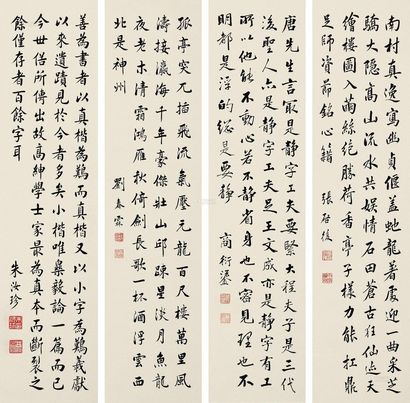 南村真逸寫幽貞偃蓋虬龍著處迎一曲采芝
驕大隱高山流水共娛情石田蒼古狂仙逸天
繪樓圖入絲絕勝荷香亭子樣力能扛鼎
足師資銘心籍 張啟後
唐先生言最是靜字工夫要緊大程夫子是三代
後聖人亦是靜字工夫足王文成亦是靜字有工
所以他能不動心若不靜省身也不密見理也不
明都是浮的總是要靜 商衍鎏
孤亭突兀插飛流氣壓元龍百尺樓萬里風
濤接瀛海千年豪傑壯山邱疎星淡月魚龍
夜老木清霜鴻雁秋倚劍長歌一杯酒浮雲西
北是神州 劉春霖
善為書者以真楷為難而真楷又以小字為難羲獻
以來遺蹟見於今者多矣小楷唯樂毅論一篇而已
今世俗所傳出故高紳學士家最為真本而斷裂之
餘僅存者百餘字耳 朱汝珍